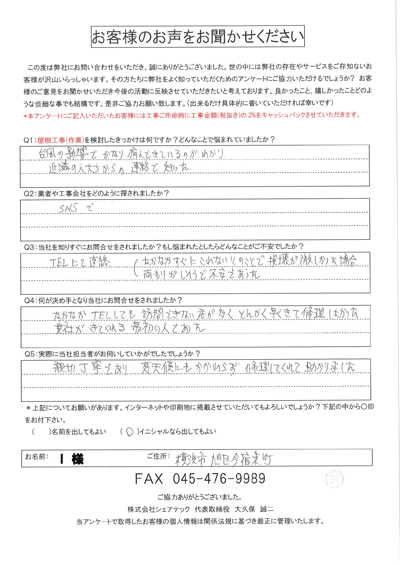 お客様のお声をお聞かせください
この度は弊社にお問い合わせをいただき、誠にありがとうございました。世の中には弊社の存在やサービスをご存知ないお
客様が沢山いらっしゃいます。その方たちに弊社をよく知っていただくためのアンケートにご協力いただけるでしょうか? お客
様のご意見をお聞かせいただき今後の活動に反映させていただきたいと考えております。良かったこと、嬉しかったことどのよ
うな些細な事でも結構です。是非ご協力お願い致します。(出来るだけ具体的に書いていただければ幸いです)
*本アンケートにご記入いただいたお客様には工事ご用命時に工事金額(税抜き)の 2%をキャッシュバックさせていただきます。
Q1:屋根工事(作業)を検討したきっかけは何ですか?どんなことで悩まれていましたか?
台風の影響でかなり
近隣の
Q2:業者や工事会社をどのように探されましたか?
SNSで
Q3:当社を知りすぐにお問合せをされましたか?もし悩まれたとしたらどんなことがご不安でしたか?
TELにて連絡
雨もりがしそうで不安であった
Q4:何が決め手となり当社にお問合せをされましたか?
なかなかTELしても訪問できない
貴社がきてくれる最初の人であった
Q5:実際に当社担当者がお伺いしていかがでしたでしょうか?
親切丁寧であり 荒天候にもかかわらず 修理してくれて助かりました
*上記についてお願いがあります。インターネットや印刷物に掲載させていただいてもよろしいでしょうか?下記の中から〇印
をお付け下さい。
( )名前を出してもよい (〇)イニシャルなら出してもよい
お名前: I 様 ご住所: 横浜市 旭区今宿東町
FAX 045-476-9989
ご協力ありがとうございました。
株式会社シェアテック 代表取締役 大久保 誠二
当アンケートで取得したお客様の個人情報は関係法規に基づき厳正に管理いたします。